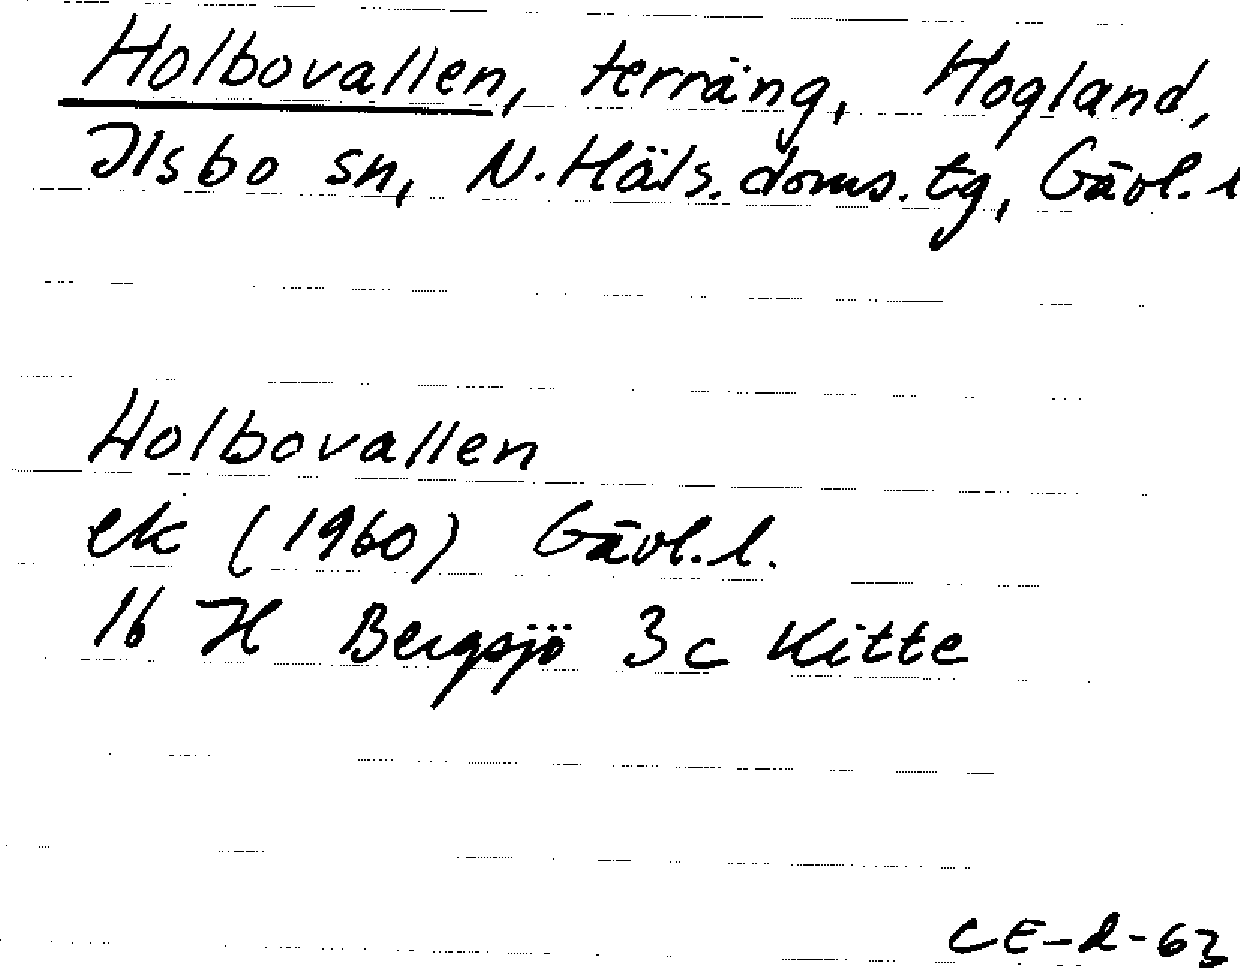 Holbovallen, terräng, Hogland,
Ilsbo sn, N. Häls. doms. tg, Gävl. l
Holbovallen
ek (1960) Gävl. l.
16 H Bergsjö 3c Kitte
CE-2-63